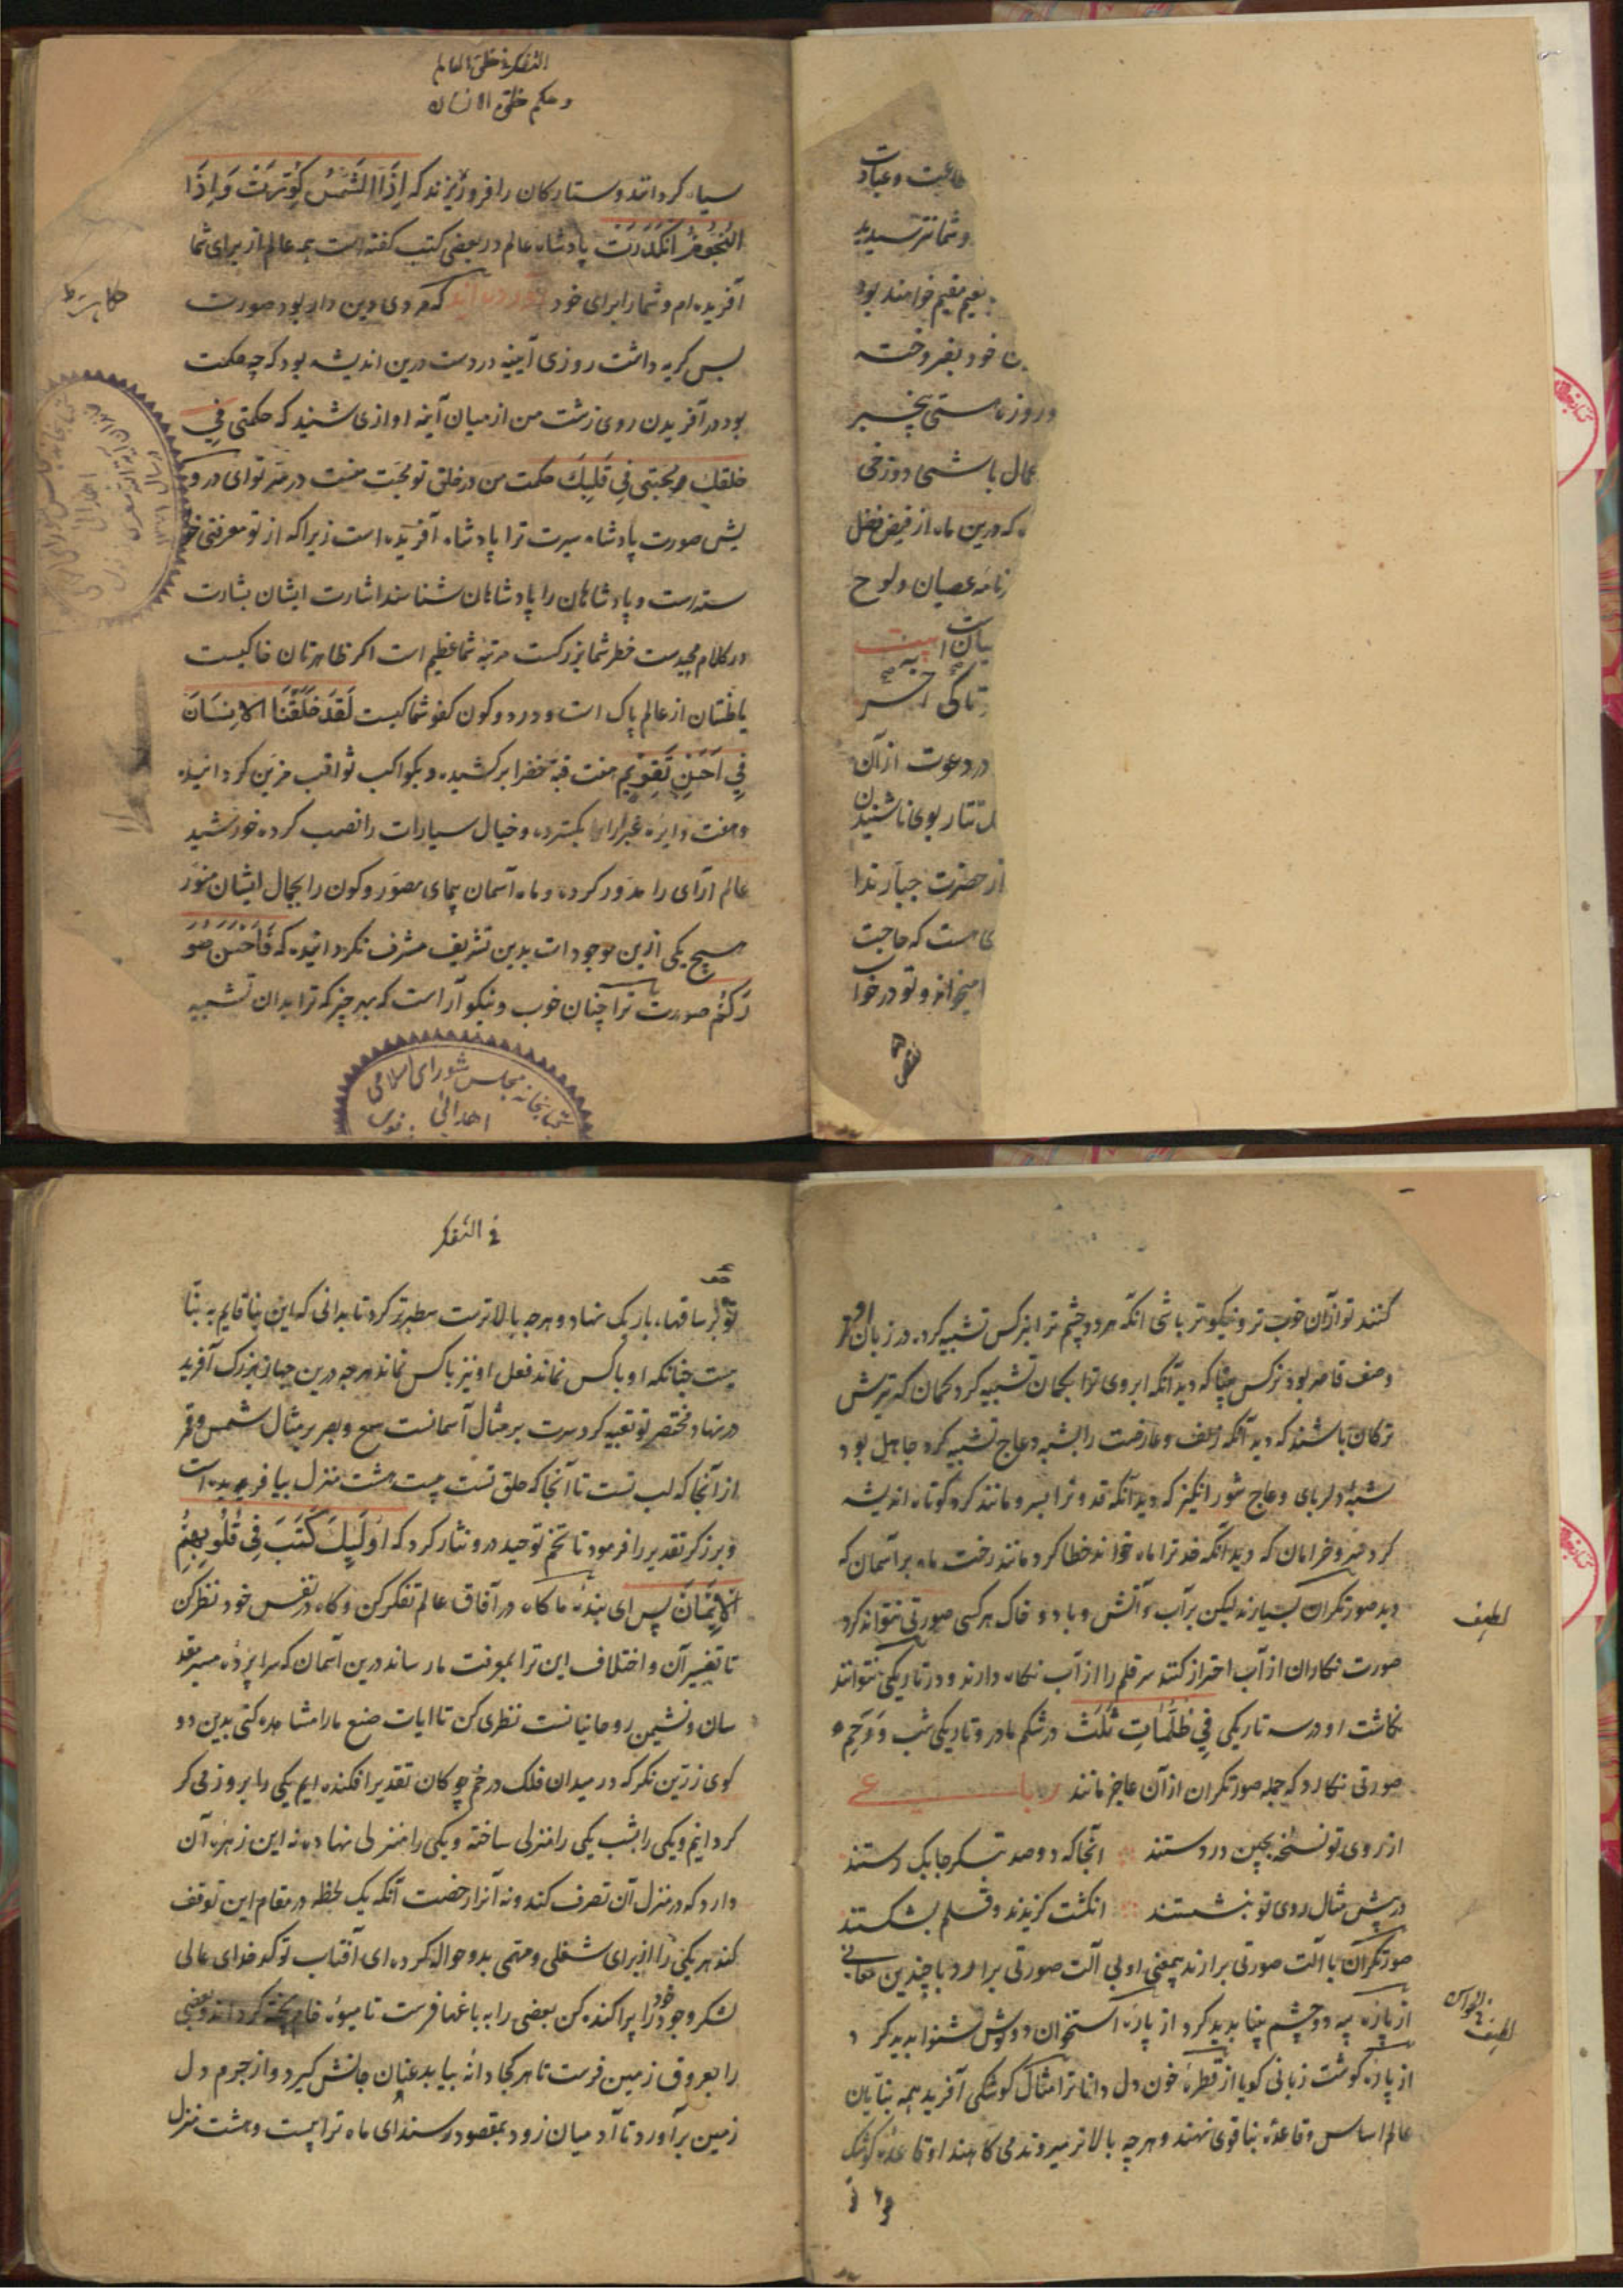 طاعت و عبادت
و شما نترسیدید
نعیم مقیم خواهند بود
خود بفروخته
و روز تا مستی بیخبر
باشی دوزخی
که درین ماه از فیض فضل
نامه عصیان و لوح
بیت
در دعوت از آن
تتار بوی ناشنیدن
از حضرت جبار ندا
هست که حاجت
میخواند و تو در خوا
التفکر فی خلق العالم
و حکم خلق الانسان
سیاه کردانند و ستارکان را فرو ریزند که اِذَا الشَّمْسُ کُوِّرَتْ وَ اِذَا
النُّجُومُ انْکَدَرَتْ پادشاه عالم در بعضی کتب کفته است همه عالم از برای شما
آفریده‌ام و شما را برای خود آورده‌اند که مردی دین دار بود صورت
بس کریه داشت روزی آیینه در دست درین اندیشه بود که چه حکمت
بود در آفریدن روی زشت من از میان آینه آوازی شنید که حکمتی فی
خلقک و محبتی فی قلبک حکمت من در خلق تو محبت منست در سر تو ای درو
یش صورت پادشاه سیرت ترا پادشاه آفریده است زیرا که از تو معرفتی خو
سته است و پادشاهان را پادشاهان شناسند اشارت ایشان بشارت
در کلام مجیدست خطر شما بزرکست مرتبه شما عظیم است اکر ظاهرتان خاکیست
باطنتان از عالم پاک است و در دو کون کفو شما کیست لَقَدْ خَلَقْنَا الاِنْسَانَ
فِی اَحْسَنِ تَقْوِیمٍ هفت قبه خضرا برکشیده و بکواکب ثواقب مزین کردانیده
و هفت دایره غبرا را بکسترده و خیال سیارات را نصب کرده خورشید
عالم آرای را مدور کرده و ماه آسمان پیمای مصور و کون را بجمال ایشان منور
هیچ یکی ازین موجودات بدین تشریف مشرف نکردانیده که فَاَحْسَنَ صُوَ
رَکُمْ صورت ترا چنان خوب و نیکو آراست که بهر چیز که ترا بدان تشبیه
حکایت
کتابخانه مجلس شورای اسلامی
اهدائی
کنند تو از آن خوب تر و نیکوتر باشی انکه هر دو چشم ترا بنرکس تشبیه کرد در زبان او از
وصف قاصر بود نرکس بینا که دید آنکه ابروی ترا بکمان تشبیه کرد کمان که تیرش
ترکان باشند که دید آنکه زلف و عارضت را بشبه و عاج تشبیه کرد جاهل بود
شبه دلربای و عاج شور انکیز که دید آنکه قد ترا بسرو مانند کرد کوتاه اندیشه
کرد سرو خرامان که دید آنکه خد ترا ماه خواند خطا کرد مانند رخت ماه بر آسمان که
دید صورتکران بسیارند لیکن بر آب و آتش و باد و خاک هر کسی صورتی نتواند کرد
صورت نکاران از آب احتراز کنند سر قلم را از آب نکاه دارند و در تاریکی نتوانند
نکاشت او در سه تاریکی فِی ظُلُمَاتٍ ثَلٰثٍ در شکم مادر و تاریکی شب و رحم
صورتی نکارد که جمله صورتکران از آن عاجز مانند رباعی
از روی تو نسخه بچین در دستند انجا که دو صد بتکر چابک دستند
در پیش مثال روی تو بنشستند انکشت کزیدند و قلم بشکستند
صورتکران با آلت صورتی برآرند بی معنی او بی آلت صورتی برآرد با چندین معانی
از پاره پیه دو چشم بینا بدید کرد از پاره استخوان دو کوش شنوا بدید کرد
از پاره کوشت زبانی کویا از قطره خون دل دانا ترا مثال کوشکی آفرید همه بنایان
عالم اساس و قاعده بنا قوی نهند و هرچه بالاتر میروند می کاهند او قاعده کوشک
لطیف
لطیف فی الحواس
فی التفکر
تو بر ساقهاء باریک نهاد و هرچه بالاترست سطبرتر کرد تا بدانی که این بنا قایم به بنا
نیست چنانکه او با کس نماند فعل او نیز با کس نماند هرچه درین جهان بزرک آفرید
در نهاد مختصر تو تعبیه کرد سرت بر مثال آسمانست سمع و بصر بر مثال شمس و قمر
از آنجا که لب تست تا آنجا که حلق تست بیست هشت منزل بیافریده است
و برزکر تقدیر را فرمود تا تخم توحید درو نثار کرد که اُولٰئِکَ کَتَبَ فِی قُلُوبِهِمُ
الْاِیمَانَ پس ای بنده ما کاه در آفاق عالم تفکر کن و کاه در نفس خود نظر کن
تا تغییر آن و اختلاف این ترا بمعرفت ما رساند درین آسمان که سراپرده مسبر مقد
سان و نشیمن روحانیانست نظری کن تا ایات صنع ما را مشاهده کنی بدین دو
کوی زرین نکر که در میدان فلک در خم چوکان تقدیر افکنده ایم یکی را بروز می کر
کردانیم و یکی را بشب یکی را منزلی ساخته و یکی را منزلی نهاده نه این زهره آن
دارد که در منزل آن تصرف کند و نه آنرا رخصت آنکه یک لحظه در مقام این توقف
کند هر یکی را از برای شغلی و مهمی بدو حواله کرده ای آفتاب تو کدخدای عالی
لشکر وجود خود را پراکنده کن بعضی را به باغها فرست تا میوه خام پخته کردانند و بعضی
را بعروق زمین فرست تا هر کجا دانه بیابد عنان جانش کیرد و از جرم دل
زمین برآورد تا آدمیان زود بمقصود رسند ای ماه ترا بیست و هشت منزل